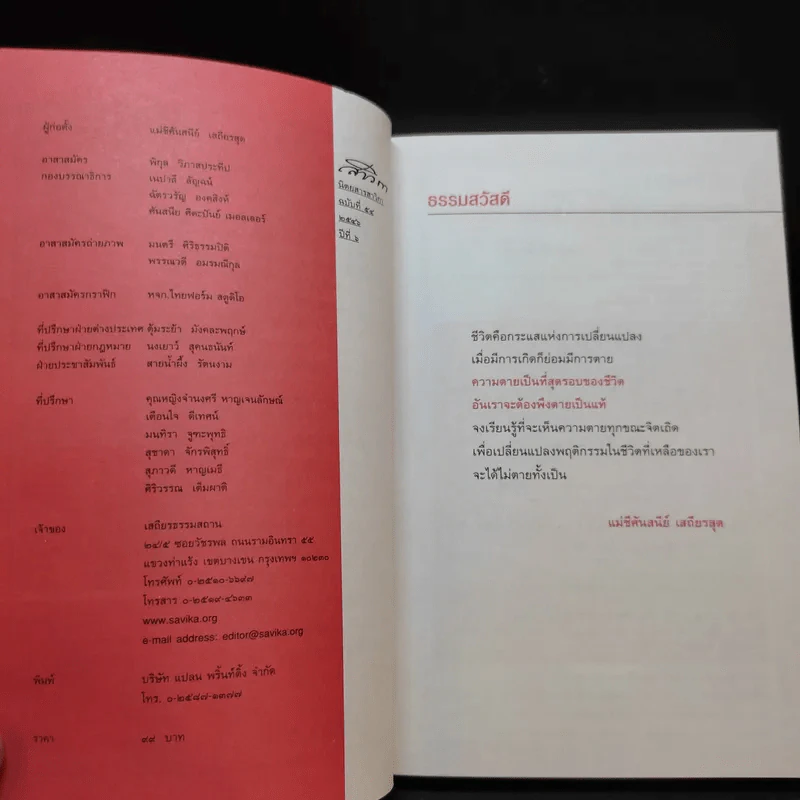 ผู้ก่อตั้ง แม่ชีศันสนีย์ เสถียรสุต
อาสาสมัคร พิกุล วิภาสประทีป
กองบรรณาธิการ เนปาลี สัญจน์
ฉัตรวรัญ องคสิงห์
ศันสนีย ศีตะปันย์ เมอลเลอร์
อาสาสมัครถ่ายภาพ มนตรี ศิริธรรมปิติ
พรรณวดี อมรมณีกุล
อาสาสมัครกราฟิก หจก.ไทยฟอร์ม สตูดิโอ
ที่ปรึกษาฝ่ายต่างประเทศ ตุ้มระย้า มังคละพฤกษ์
ที่ปรึกษาฝ่ายกฎหมาย นงเยาว์ สุคนธนันท์
ฝ่ายประชาสัมพันธ์ สายน้ำผึ้ง รัตนงาม
ที่ปรึกษา คุณหญิงจำนงศรี หาญเจนลักษณ์
เตือนใจ ดีเทศน์
มนทิรา จูฑะพุทธิ
สุชาดา จักรพิสุทธิ์
สุภาวดี หาญเมธี
ศิริวรรณ เต็มผาติ
เจ้าของ เสถียรธรรมสถาน
๒๔/๕ ซอยวัชรพล ถนนรามอินทรา ๕๕
แขวงท่าแร้ง เขตบางเขน กรุงเทพฯ ๑๐๒๓๐
โทรศัพท์ ๐-๒๕๑๐-๖๖๙๗
โทรสาร ๐-๒๕๑๙-๔๖๓๓
www.savika.org
e-mail address: editor@savika.org
พิมพ์ บริษัท แปลน พริ้นท์ติ้ง จำกัด
โทร. ๐-๒๕๘๗-๑๓๗๗
ราคา ๙๙ บาท
สาวิกา
นิตยสารสาวิกา
ฉบับที่ ๕๔
๒๕๔๖
ปีที่ ๖
ธรรมสวัสดี
ชีวิตคือกระแสแห่งการเปลี่ยนแปลง
เมื่อมีการเกิดก็ย่อมมีการตาย
ความตายเป็นที่สุดรอบของชีวิต
อันเราจะต้องพึงตายเป็นแท้
จงเรียนรู้ที่จะเห็นความตายทุกขณะจิตเถิด
เพื่อเปลี่ยนแปลงพฤติกรรมในชีวิตที่เหลือของเรา
จะได้ไม่ตายทั้งเป็น
แม่ชีศันสนีย์ เสถียรสุต